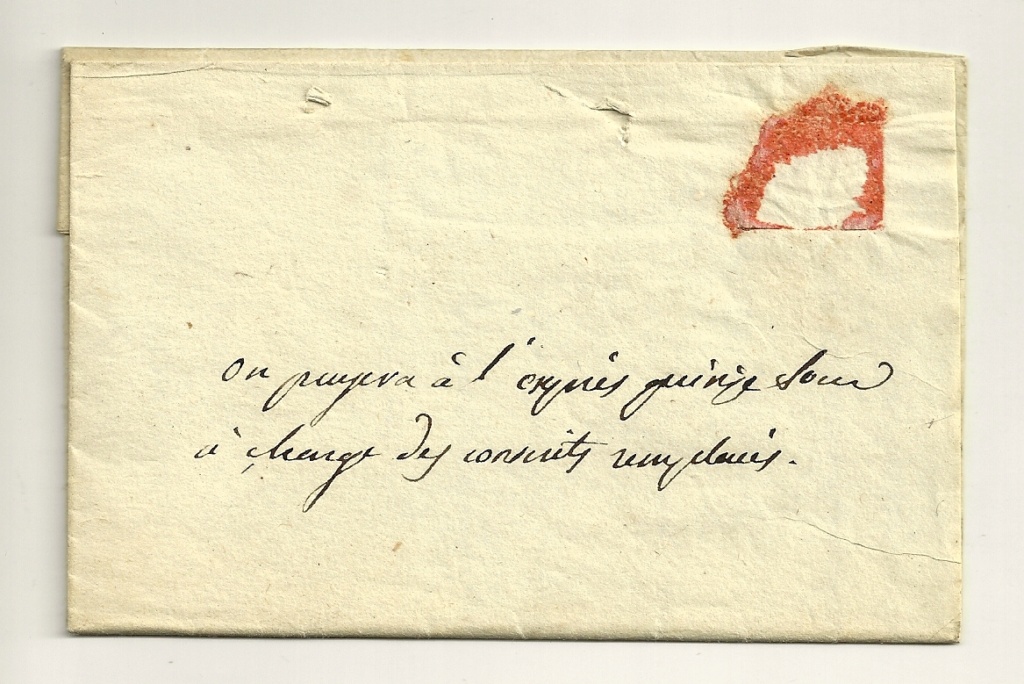 on payera à l'exprés quinze sous
à charge des conscrits remplacés.